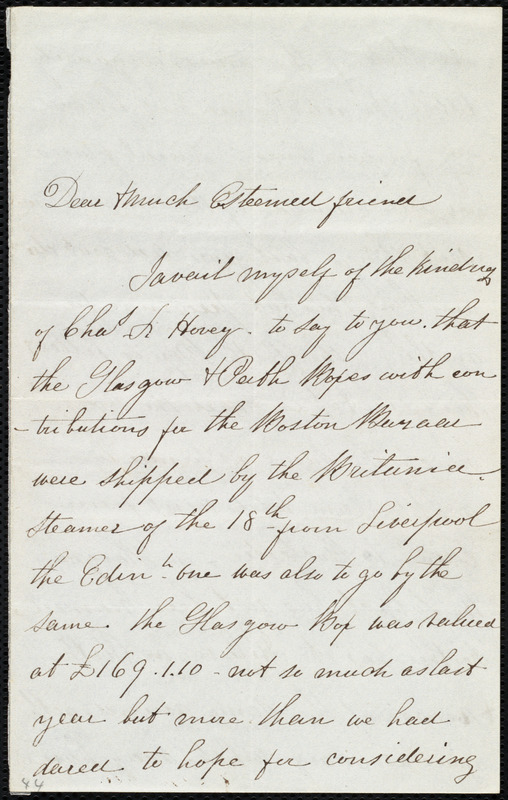 Dear & much Esteemed friend
I avail myself of the kindness
of Chas. F. Hovey. to say to you. that
the Glasgow & Perth Boxes with con
-tributions for the Boston Bazaar
were shipped by the Britania
steamer of the 18th from Liverpool
the Edinh. one was also to go by the
same. the Glasgow Box was valued
at £169.1.10 - not so much as last
year but more than we had
dared to hope for considering
44